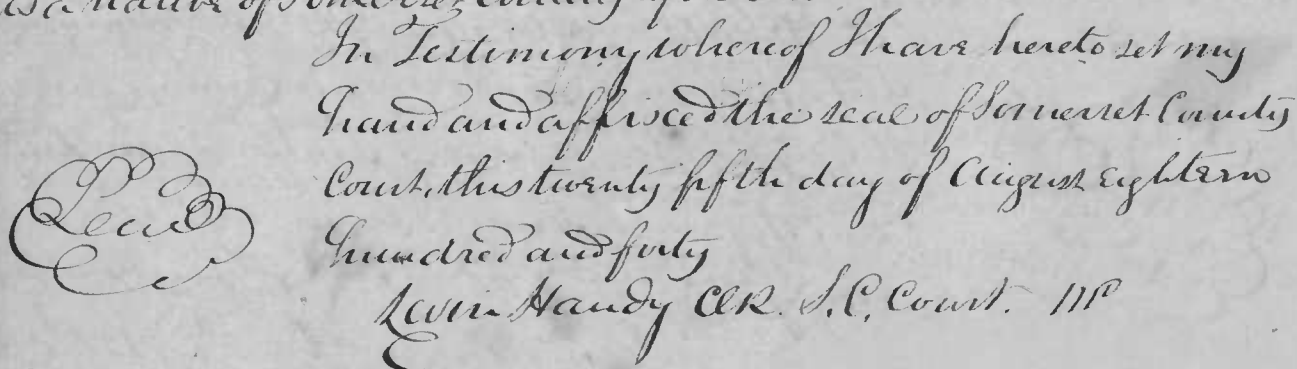 is a native of Somerset County
In Testimony whereof I have hereto set my
hand and affixed the seal of Somerset County
Court, this twenty fifth day of August Eighteen
Seal
hundred and forty
Levin Handy Clk. S. C. Court. Md